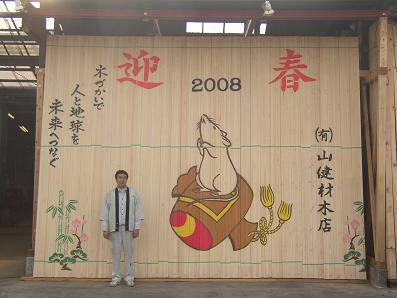 迎春
2008
㈲山健材木店
木づかいで
人と地球を
未来へつなぐ